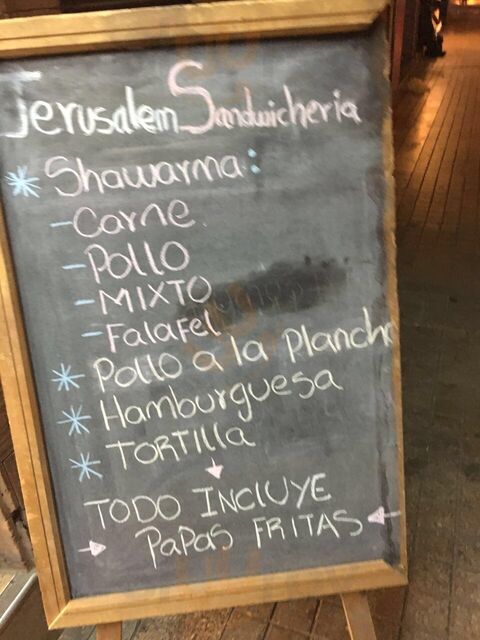 Jerusalem Sandwicheria
* Shawarma:
- Carne
- Pollo
- MIXTO
- Falafel
* Pollo a la Plancha
* Hamburguesa
* TORTILLA
TODO INCLUYE
PAPAS FRITAS